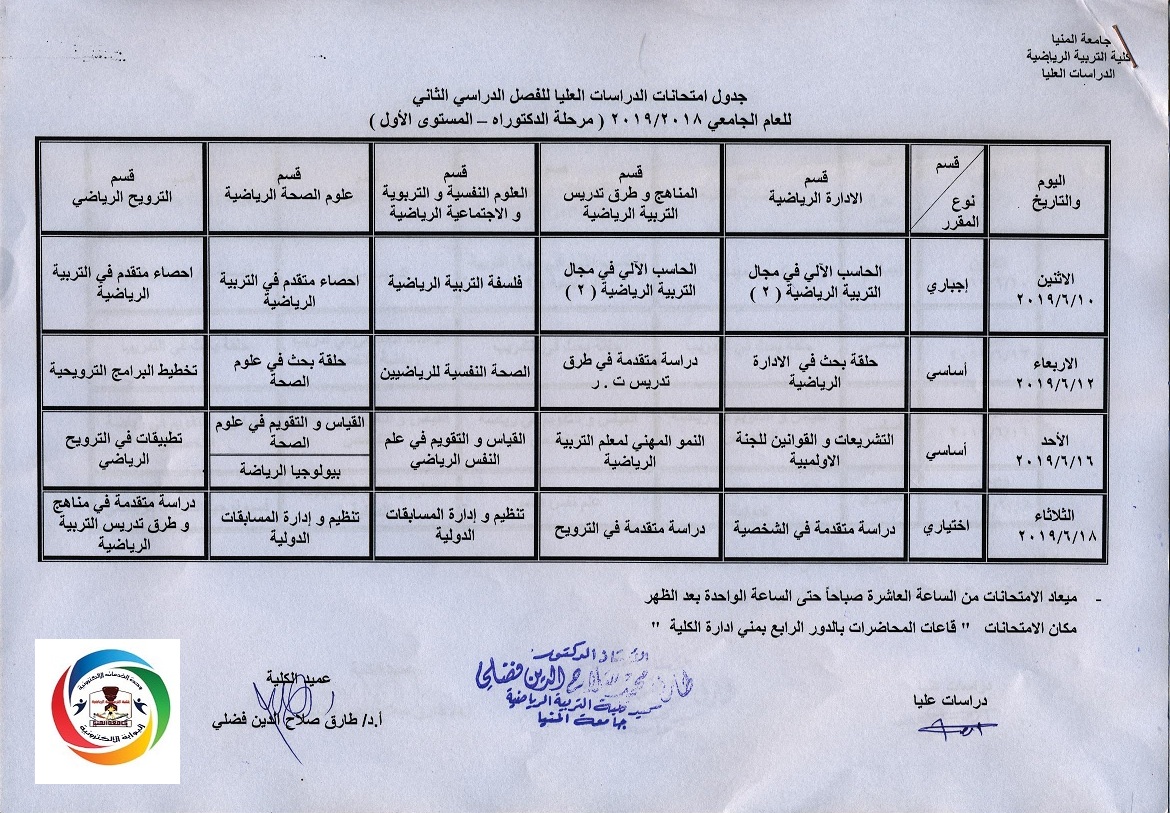 جامعة المنيا
كلية التربية الرياضية
الدراسات العليا
جدول امتحانات الدراسات العليا للفصل الدراسي الثاني
للعام الجامعي ٢٠١٩/٢٠١٨ ( مرحلة الدكتوراه – المستوى الأول )
اليوم
والتاريخ
قسم
نوع
المقرر
قسم
الادارة الرياضية
قسم
المناهج و طرق تدريس
التربية الرياضية
قسم
العلوم النفسية و التربوية
و الاجتماعية الرياضية
قسم
علوم الصحة الرياضية
قسم
الترويح الرياضي
الاثنين
٢٠١٩/٦/١٠
إجباري
الحاسب الآلي في مجال
التربية الرياضية ( ٢ )
الحاسب الآلي في مجال
التربية الرياضية ( ٢ )
فلسفة التربية الرياضية
احصاء متقدم في التربية
الرياضية
احصاء متقدم في التربية
الرياضية
الاربعاء
٢٠١٩/٦/١٢
أساسي
حلقة بحث في الادارة
الرياضية
دراسة متقدمة في طرق
تدريس ت . ر
الصحة النفسية للرياضيين
حلقة بحث في علوم
الصحة
تخطيط البرامج الترويحية
الأحد
٢٠١٩/٦/١٦
أساسي
التشريعات و القوانين للجنة
الاولمبية
النمو المهني لمعلم التربية
الرياضية
القياس و التقويم في علم
النفس الرياضي
القياس و التقويم في علوم
الصحة
بيولوجيا الرياضة
تطبيقات في الترويح
الرياضي
الثلاثاء
٢٠١٩/٦/١٨
اختياري
دراسة متقدمة في الشخصية
دراسة متقدمة في الترويح
تنظيم و إدارة المسابقات
الدولية
تنظيم و إدارة المسابقات
الدولية
دراسة متقدمة في مناهج
و طرق تدريس التربية
الرياضية
- ميعاد الامتحانات من الساعة العاشرة صباحاً حتى الساعة الواحدة بعد الظهر
مكان الامتحانات " قاعات المحاضرات بالدور الرابع بمني ادارة الكلية "
دراسات عليا
الأستاذ الدكتور
طارق صلاح الدين فضلي
عميد كلية التربية الرياضية
جامعة المنيا
عميد الكلية
أ.د/ طارق صلاح الدين فضلي
وحدة الخدمات الإلكترونية
البوابة الالكترونية